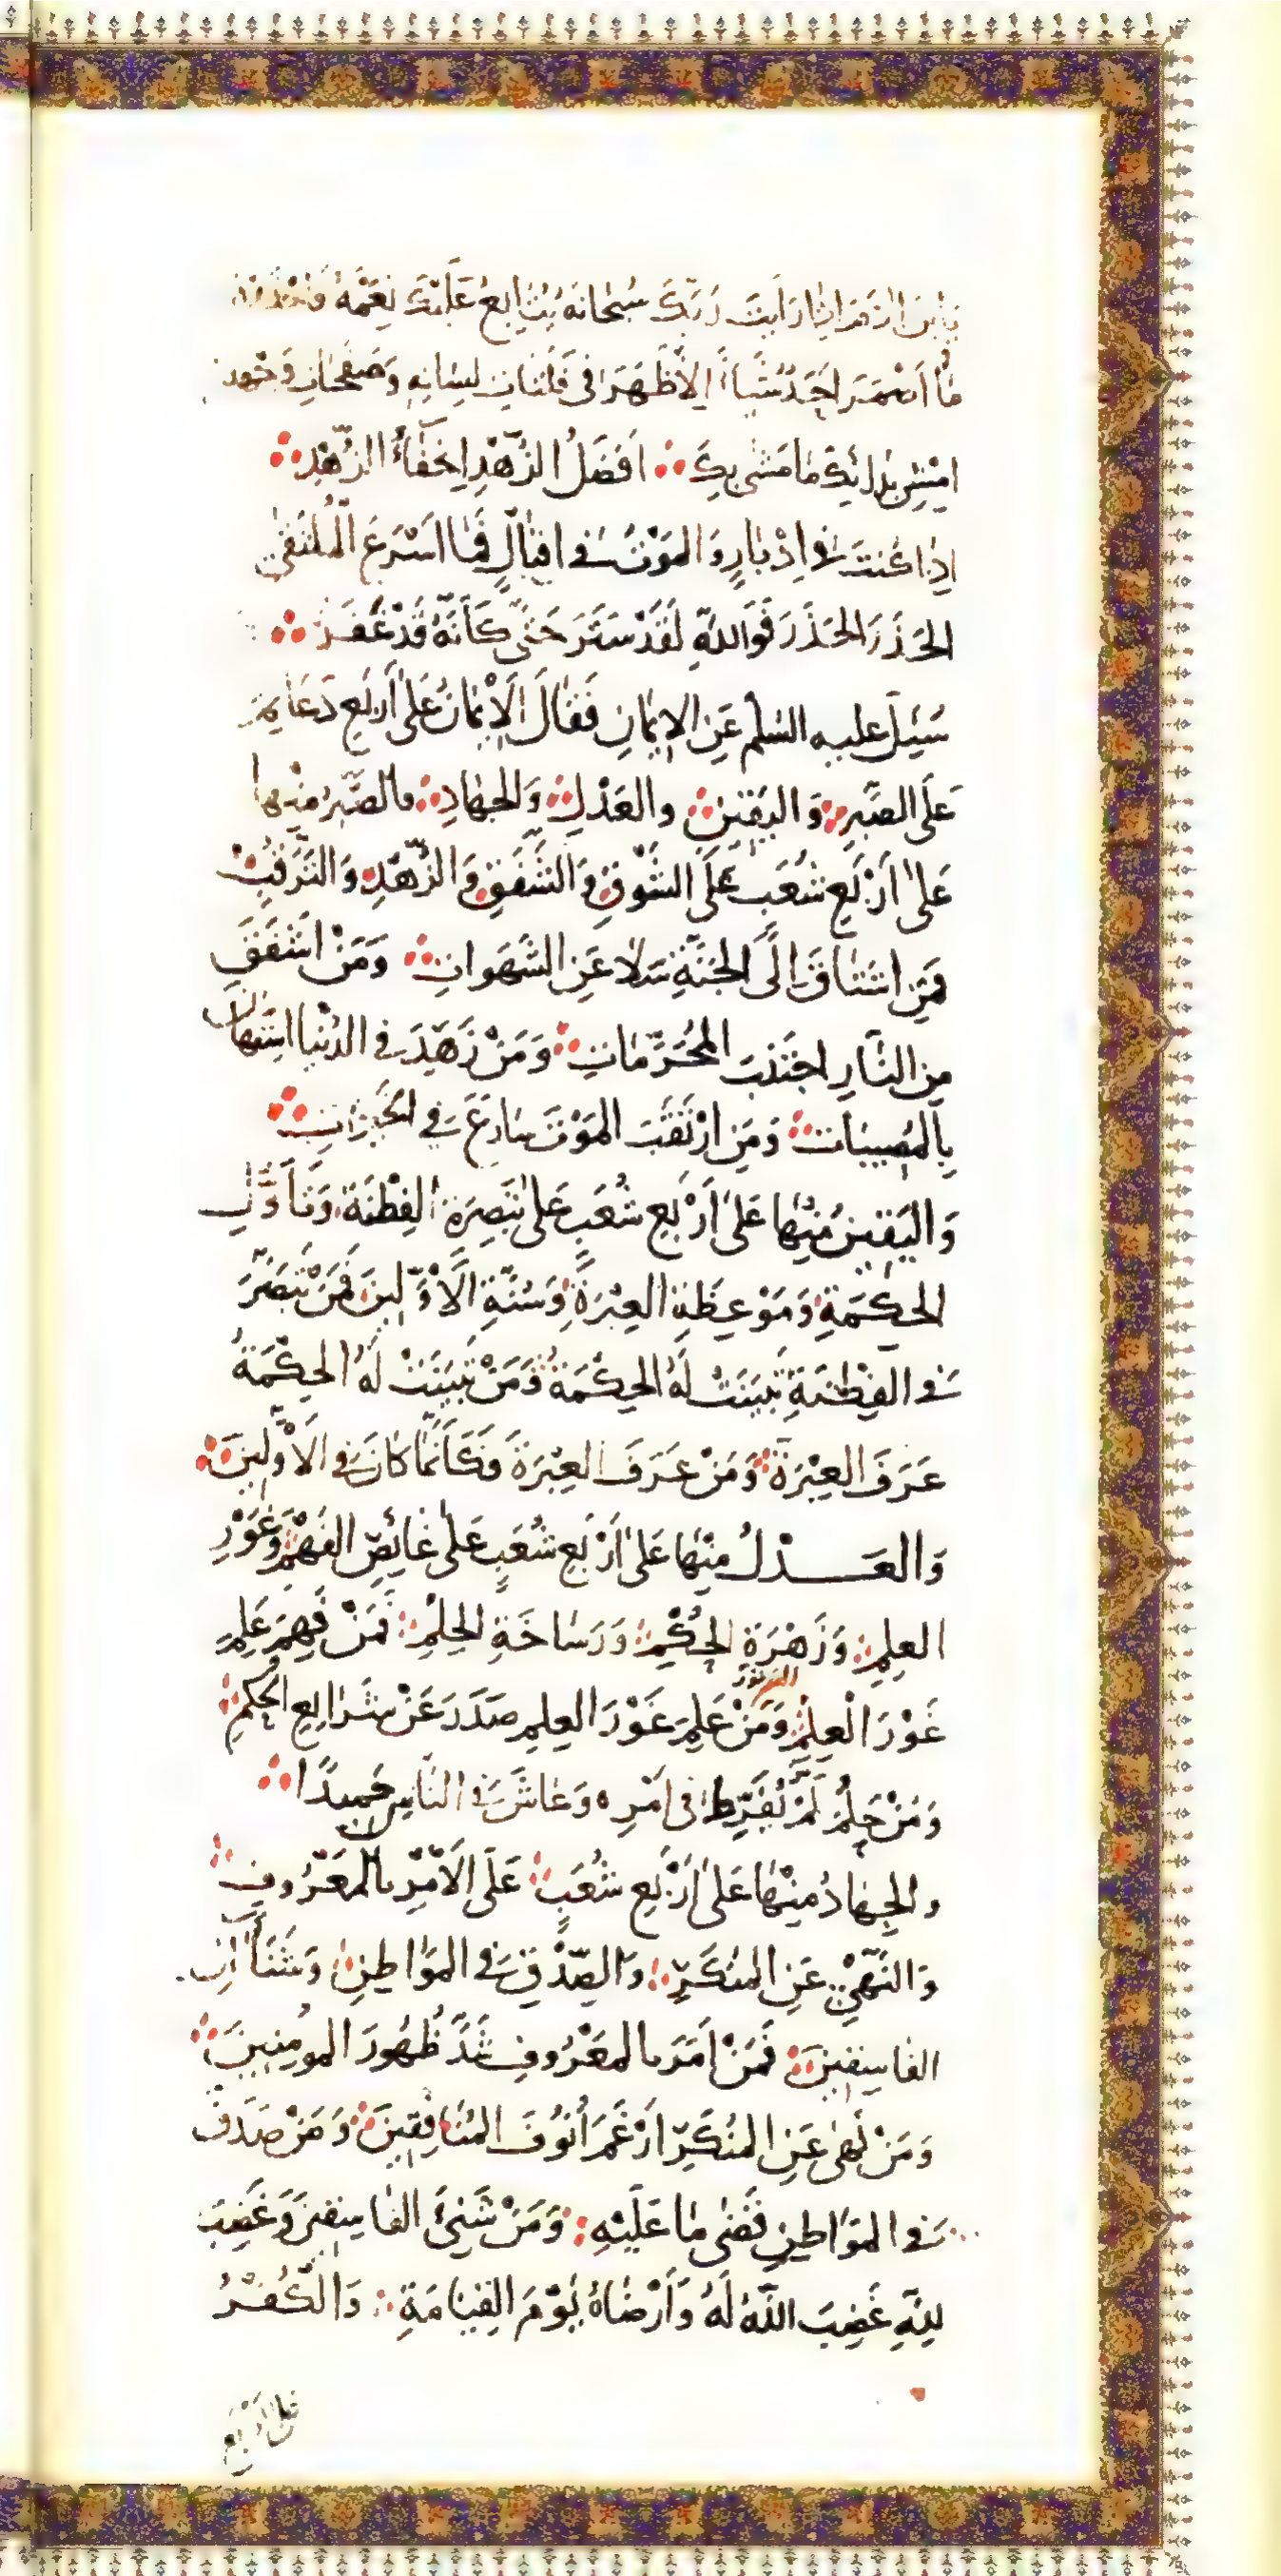 يَا بْنَ اٰدَمَ اِذَا رَاَيْتَ رَبَّكَ سُبْحَانَهُ يُتَابِعُ عَلَيْكَ نِعَمَهُ فَاحْذَرْهُ
مَا اَضْمَرَ اَحَدٌ شَيْئاً اِلَّا ظَهَرَ فِي فَلَتَاتِ لِسَانِهِ وَصَفَحَاتِ وَجْهِهِ
امْشِ بِدَائِكَ مَا مَشٰى بِكَ اَفْضَلُ الزُّهْدِ اِخْفَاءُ الزُّهْدِ
اِذَا كُنْتَ فِي اِدْبَارٍ وَالمَوْتُ فِي اِقْبَالٍ فَمَا اَسْرَعَ الْمُلْتَقٰى
الحَذَرَ الحَذَرَ فَوَاللّٰهِ لَقَدْ سَتَرَ حَتّٰى كَاَنَّهُ قَدْ غَفَرَ
سُئِلَ عليه السلم عَنِ الاِيمَانِ فَقَالَ اَلْاِيمَانُ عَلٰى اَرْبَعِ دَعَائِمَ
عَلَى الصَّبْرِ وَاليَقِينِ والعَدْلِ وَالجِهَادِ فالصَّبْرُ مِنْهَا
عَلٰى اَرْبَعِ شُعَبٍ عَلَى الشَّوْقِ وَالشَّفَقِ وَالزُّهْدِ وَالتَّرَقُّبِ
فَمَنِ اشْتَاقَ اِلَى الجَنَّةِ سَلَا عَنِ الشَّهَوَاتِ وَمَنْ اَشْفَقَ
مِنَ النَّارِ اجْتَنَبَ المُحَرَّمَاتِ وَمَنْ زَهِدَ فِي الدُّنْيَا اسْتَهَانَ
بِالمُصِيبَاتِ وَمَنِ ارْتَقَبَ المَوْتَ سَارَعَ فِي الخَيْرَاتِ
وَاليَقِينُ مِنْهَا عَلٰى اَرْبَعِ شُعَبٍ عَلٰى تَبْصِرَةِ الفِطْنَةِ وَتَأَوُّلِ
الحِكْمَةِ وَمَوْعِظَةِ العِبْرَةِ وَسُنَّةِ الاَوَّلِينَ فَمَنْ تَبَصَّرَ
فِي الفِطْنَةِ تَبَيَّنَتْ لَهُ الحِكْمَةُ وَمَنْ تَبَيَّنَتْ لَهُ الحِكْمَةُ
عَرَفَ العِبْرَةَ وَمَنْ عَرَفَ العِبْرَةَ فَكَاَنَّمَا كَانَ فِي الاَوَّلِينَ
وَالعَدْلُ مِنْهَا عَلٰى اَرْبَعِ شُعَبٍ عَلٰى غَائِصِ الفَهْمِ وَغَوْرِ
العِلْمِ وَزَهْرَةِ الحُكْمِ وَرَسَاخَةِ الحِلْمِ فَمَنْ فَهِمَ عَلِمَ
غَوْرَ الْعِلْمِ وَمَنْ عَلِمَ غَوْرَ العِلْمِ صَدَرَ عَنْ شَرَائِعِ الحِكَمِ
وَمَنْ حَلُمَ لَمْ يُفَرِّطْ فِي اَمْرِهِ وَعَاشَ فِي النَّاسِ حَمِيدًا
والجِهَادُ مِنْهَا عَلٰى اَرْبَعِ شُعَبٍ عَلَى الاَمْرِ بالمَعْرُوفِ
وَالنَّهْيِ عَنِ المُنْكَرِ وَالصِّدْقِ فِي المَوَاطِنِ وَشَنَآنِ
الفَاسِقِينَ فَمَنْ اَمَرَ بالمَعْرُوفِ شَدَّ ظُهُورَ المومِنِينَ
وَمَنْ نَهٰى عَنِ المُنْكَرِ اَرْغَمَ اُنُوفَ المُنَافِقِينَ وَمَنْ صَدَقَ
فِي المَوَاطِنِ قَضٰى مَا عَلَيْهِ وَمَنْ شَنِئَ الفَاسِقِينَ وَغَضِبَ
لِلّٰهِ غَضِبَ اللّٰهُ لَهُ وَاَرْضَاهُ يَوْمَ القِيَامَةِ وَالْكُفْرُ
عَلٰى اَرْبَعِ